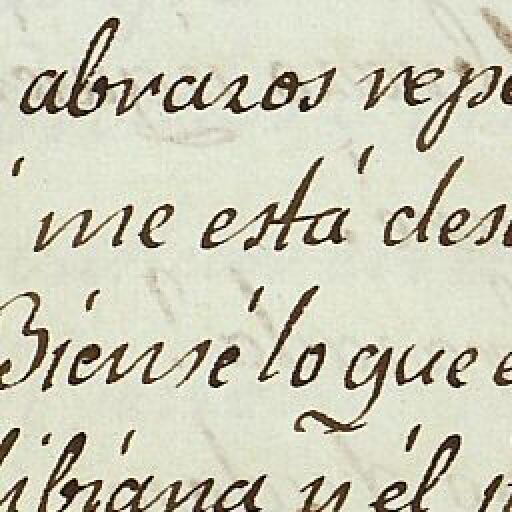 abrazos repe
me está des
Bien sé lo que e
libiana y él